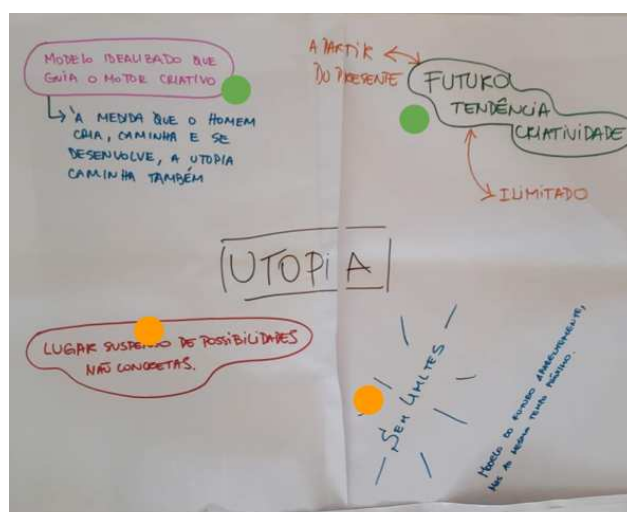 MODELO IDEALIZADO QUE
GUIA O MOTOR CRIATIVO
À MEDIDA QUE O HOMEM
CRIA, CAMINHA E SE
DESENVOLVE, A UTOPIA
CAMINHA TAMBÉM
A PARTIR
DO PRESENTE
FUTURO
TENDÊNCIA
CRIATIVIDADE
ILIMITADO
UTOPIA
LUGAR SUSPENSO DE POSSIBILIDADES
NÃO CONCRETAS.
SEM LIMITES
MODELO DO FUTURO APARENTEMENTE,
MAS AO MESMO TEMPO PRÓXIMO.